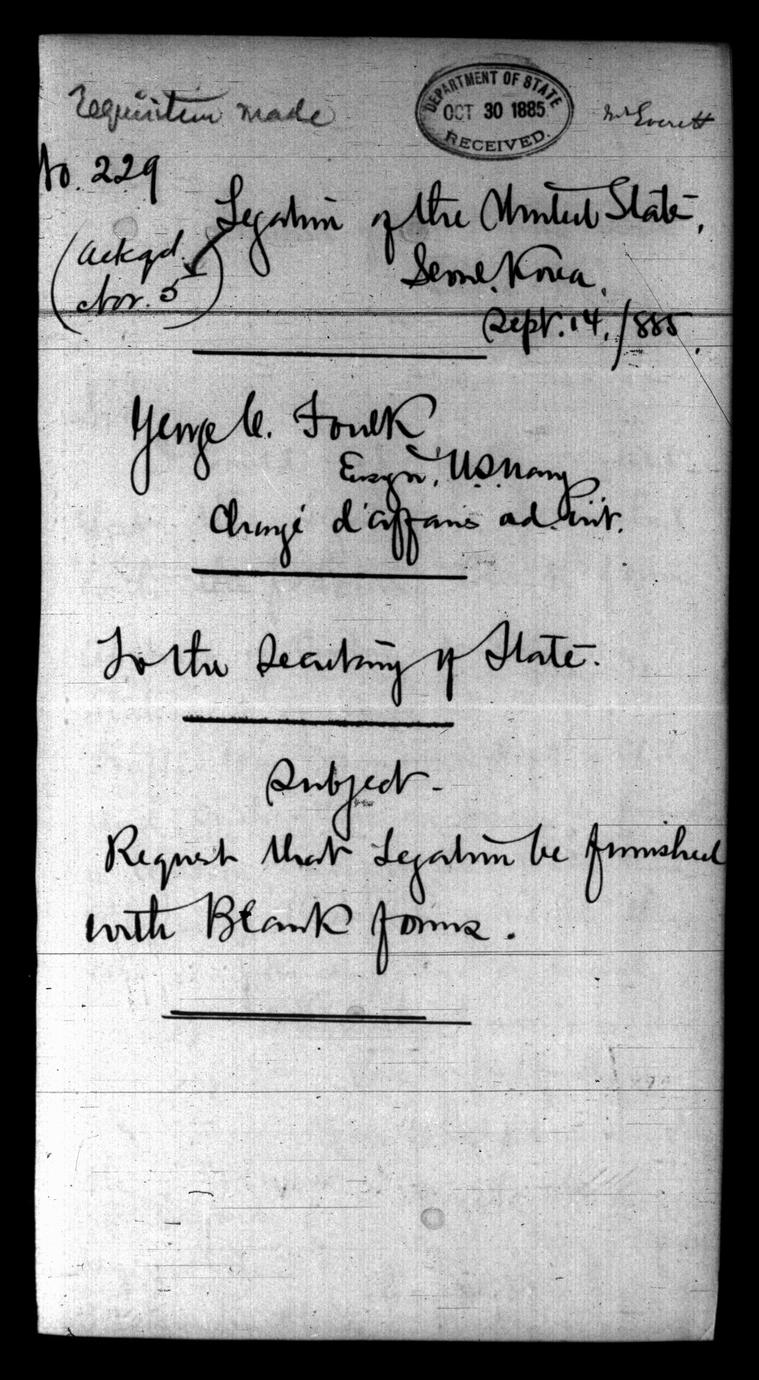 Requisition made
DEPARTMENT OF STATE
OCT 30 1885
RECEIVED.
Mr Everett
No. 229
Legation of the United States,
Seoul, Korea,
Sept. 14, 1885.
(Ackgd.
Nov. 5)
George C. Foulk
Ensign, U.S. Navy
Chargé d'affaires ad. int.
To the Secretary of State.
Subject-
Request that Legation be furnished
with Blank forms.